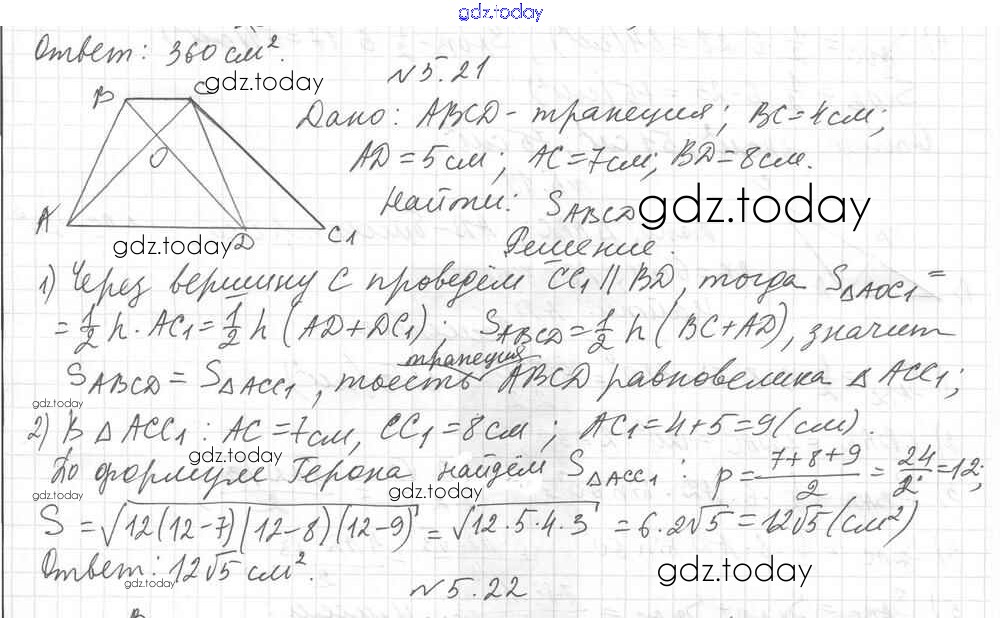 gdz.today
Ответ: 360 см².
gdz.today
N 5.21
B C
O
A D C1
gdz.today
Дано: ABCD - трапеция; BC = 4см;
AD = 5 см; AC = 7см; BD = 8см.
Найти: S_ABCD
gdz.today
Решение.
1) Через вершину C проведём CC₁ ∥ BD, тогда S_ΔACC₁ =
= 1/2 h · AC₁ = 1/2 h (AD + DC₁), S_ABCD = 1/2 h (BC + AD), значит
S_ABCD = S_ΔACC₁, тоесть трапеция ABCD равновелика Δ ACC₁;
gdz.today
2) В Δ ACC₁: AC = 7см, CC₁ = 8см; AC₁ = 4+5 = 9(см).
gdz.today
По формуле Герона найдём S_ΔACC₁: p = (7+8+9)/2 = 24/2 = 12;
gdz.today
gdz.today
S = √(12(12-7)(12-8)(12-9)) = √(12·5·4·3) = 6·2√5 = 12√5 (см²)
Ответ: 12√5 см².
gdz.today
gdz.today
N 5.22
B